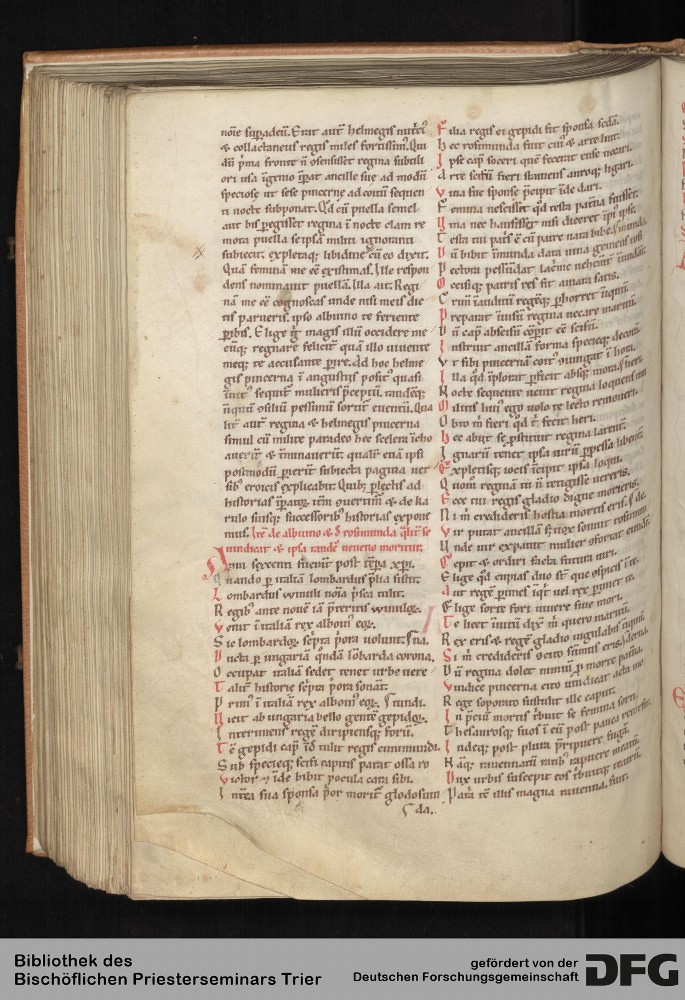 noīe suꝑadeū. Erat aut̄ helmegis nutrit᷒
& collactaneus regis miles fortissim᷒. Qui
dū p̄ma fronte ñ ↄsensisset regina subtili
ori usa īgenio īꝑat ancille sue ad modū
speciose ut sese pincerne ad coitū sequen
ti nocte subponat. Qđ cū puella semel
aut bis ꝑegisset regina ī nocte clam re
mota puella se ipsā militi ignoranti
subiecit. expletaq; libidine cū eo dixit.
Quā feminā me eē existimas. Ille respon
dens nominauit puellā. Illa ait. Regi
nā me eē cognoscas unde nisi meis dic
tis parueris. ipso albuino te feriente
ꝑibis. Elige g̊ magis illū occidere me
cūq; regnare feliciť quā illo uiuente
meq; te accusante ꝑire. Ad hoc helme
gis pincerna ī angustiis posit᷒ quasi
inuit᷒ sequit᷒ mulieris p̄ceptū. tandēq;
iniquū ↄsiliū pessimū sortit᷒ euentū. Qua
lit̄ aut̄ regina & helmegis pincerna
simul cū milite paradeo hec scelera īcho
auerīt & ↄminauerīt. qualiť eciā ipsi
postmodū ꝑierīt subiecta pagina uer
sib᷒ eroicis explicabit. Quib; ꝑlectis ad
historias īꝑatoꝝ iťm ↄuertim᷒ & de ka
rulo suisq; successorib᷒ historias exponi
mus. Itē de albuino & đ rosimunda qualit̄ se
uindicat & ipsa tandē ueneno moritur.
Anni sexcenti fuerūt post tēpora xp̄i.
Quando ꝑ italiā lombardus p̄lia fudit.
Lombardus winuli noīa p̄sca tulit.
Regib᷒ ante nouē iā p̄teritis winuloꝝ.
Venit ī italiā rex alboin᷒ eoꝝ.
Sic lombardoꝝ sc̄pta p̄ora uolunt.
Ducta ꝑ ungariā q̄ndā lōbarda corona.
Occupat italiā sedet tenet urbe uerona.
Taliť historie sc̄pta p̄ora sonāt.
Prim᷒ ī italiā rex alboin᷒ eoꝝ.
Vicit ab ungaria bello gentē gepidoꝝ.
Interimens regē diripiensq; forū.
Tē gepidi cap̄ īđ tulit regis cunimundi.
Sub specieq; scifi capitis parat ossa ro
Victor & īde bibit pocula cara sibi.
Intēa sua sponsa p̄or morit᷒ glodosunda.
Filia regis ei gepidi fit sponsa sc̄da.
Hec rosimunda fuit cui᷒ & arte ruit.
Ipse cap̄ soceri quē fecerat ense necari.
Arte scifū fieri statuens auroq; ligari.
Vina sue sponse p̄cipit īde dari.
Femina nescisset qđ testa paťna fuisset.
Vina nec hausisset nisi diceret ip̄i᷒ ipse.
Testa tui pat̄s ē cū patre nata bibe.
Dū bibit īmunda data uina gemens rosimunda.
Pectora pessūdat lac̄mę uehemť inūdāt.
Occisiq; patris res fit amara satis.
Crim̄ iaudītū regēq; ꝑhorret iniquū.
Preparat iniusū regina necare maritū.
Dū cap̄ abscisū cōpit eē scifū.
Instruit ancillā formā specieq; decorā.
Vt sibi pincernā coit᷒ ↄiungat ī hora.
Illa qđ īplorat ꝑficit absq; mora.
Nocte sequente uenit regina loquens
Militis hui᷒ ego uolo te lecto remoueri.
Obro m̄ fieri qđ t̄ fecit heri.
Hec abiit se ꝑstituit regina latent̄.
Ignarū tenet ipsa uirū ꝑpessa libent̄.
Expletisq; iocis īcipit ipsa loqui.
Quoniā reginā tu ñ tetigisse uereris.
Ecce tui regis gladio digne morieris.
Ni m̄ credideris hostia mortis eris.
Vir putat ancillā sꝫ uox sonuit rosimundā.
Vnde uir expauit mulier ↄfortat eundē.
Cepit & ordiri facta futura uiri.
Elige qđ cupias duo st̄ que ↄspicis ī te.
Aut regē ꝑimes īq̄t uel rex ꝑimet te.
Elige sorte fori uiuere siue mori.
Te licet inuitū dix̄ m̄ quero maritū.
Rex eris & regē gladio iugulabis iniquū.
Si m̄ credideris ↄcito sūm᷒ eris.
Dū regina dolet nimiū ꝑ morte paťna.
Vindice pincerna cito uindicat acta
Rege soporato sustulit ille caput.
In p̄ciū mortis t̄buit se femina forti.
Thesaurosq; suos ī eū post pauca reportās.
Indeq; post plura p̄ripuere fugā.
Naq; rauennatū ratib᷒ rapuere meatū.
Dux urbis suscepit eos t̄buitq; teatrū.
Para tē illis magna rauenna fuit.
Bibliothek des
Bischöflichen Priesterseminars Trier
gefördert von der
Deutschen Forschungsgemeinschaft
DFG